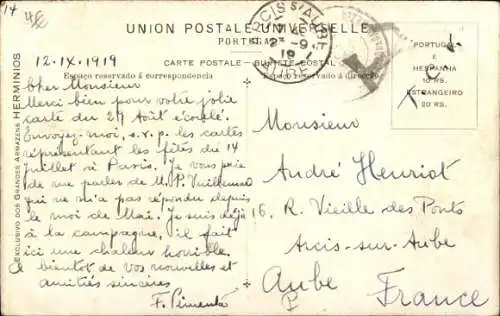 14
4/€
UNION POSTALE UNIVERSELLE
PORTUGAL
CARTE POSTALE - BILHETE POSTAL
Espaço reservado á correspondencia
Espaço reservado á direcção
ARCIS S/ AUBE
AUBE
PORTUGAL
HESPANHA
10 RS.
ESTRANGEIRO
20 RS.
EXCLUSIVO DOS GRANDES ARMAZENS HERMINIOS
12-IX-1919
Cher Monsieur
Merci bien pour votre jolie
carte du 29 Août écoulé.
Envoyez-moi, s.v.p. les cartes
représentant les fêtes du 14
juillet à Paris. Je vous prie
de me parler de M. P. Vuillemet
qui ne m'a pas répondu depuis
le moi de Mai. Je suis déjà
à la campagne, il fait
ici une chaleur horrible.
A bientôt de vos nouvelles et
amitiés sincères
F. Pimenta
Monsieur
André Heuriot
16, R. Vieille des Ponts
Arcis-sur-Aube
Aube
France